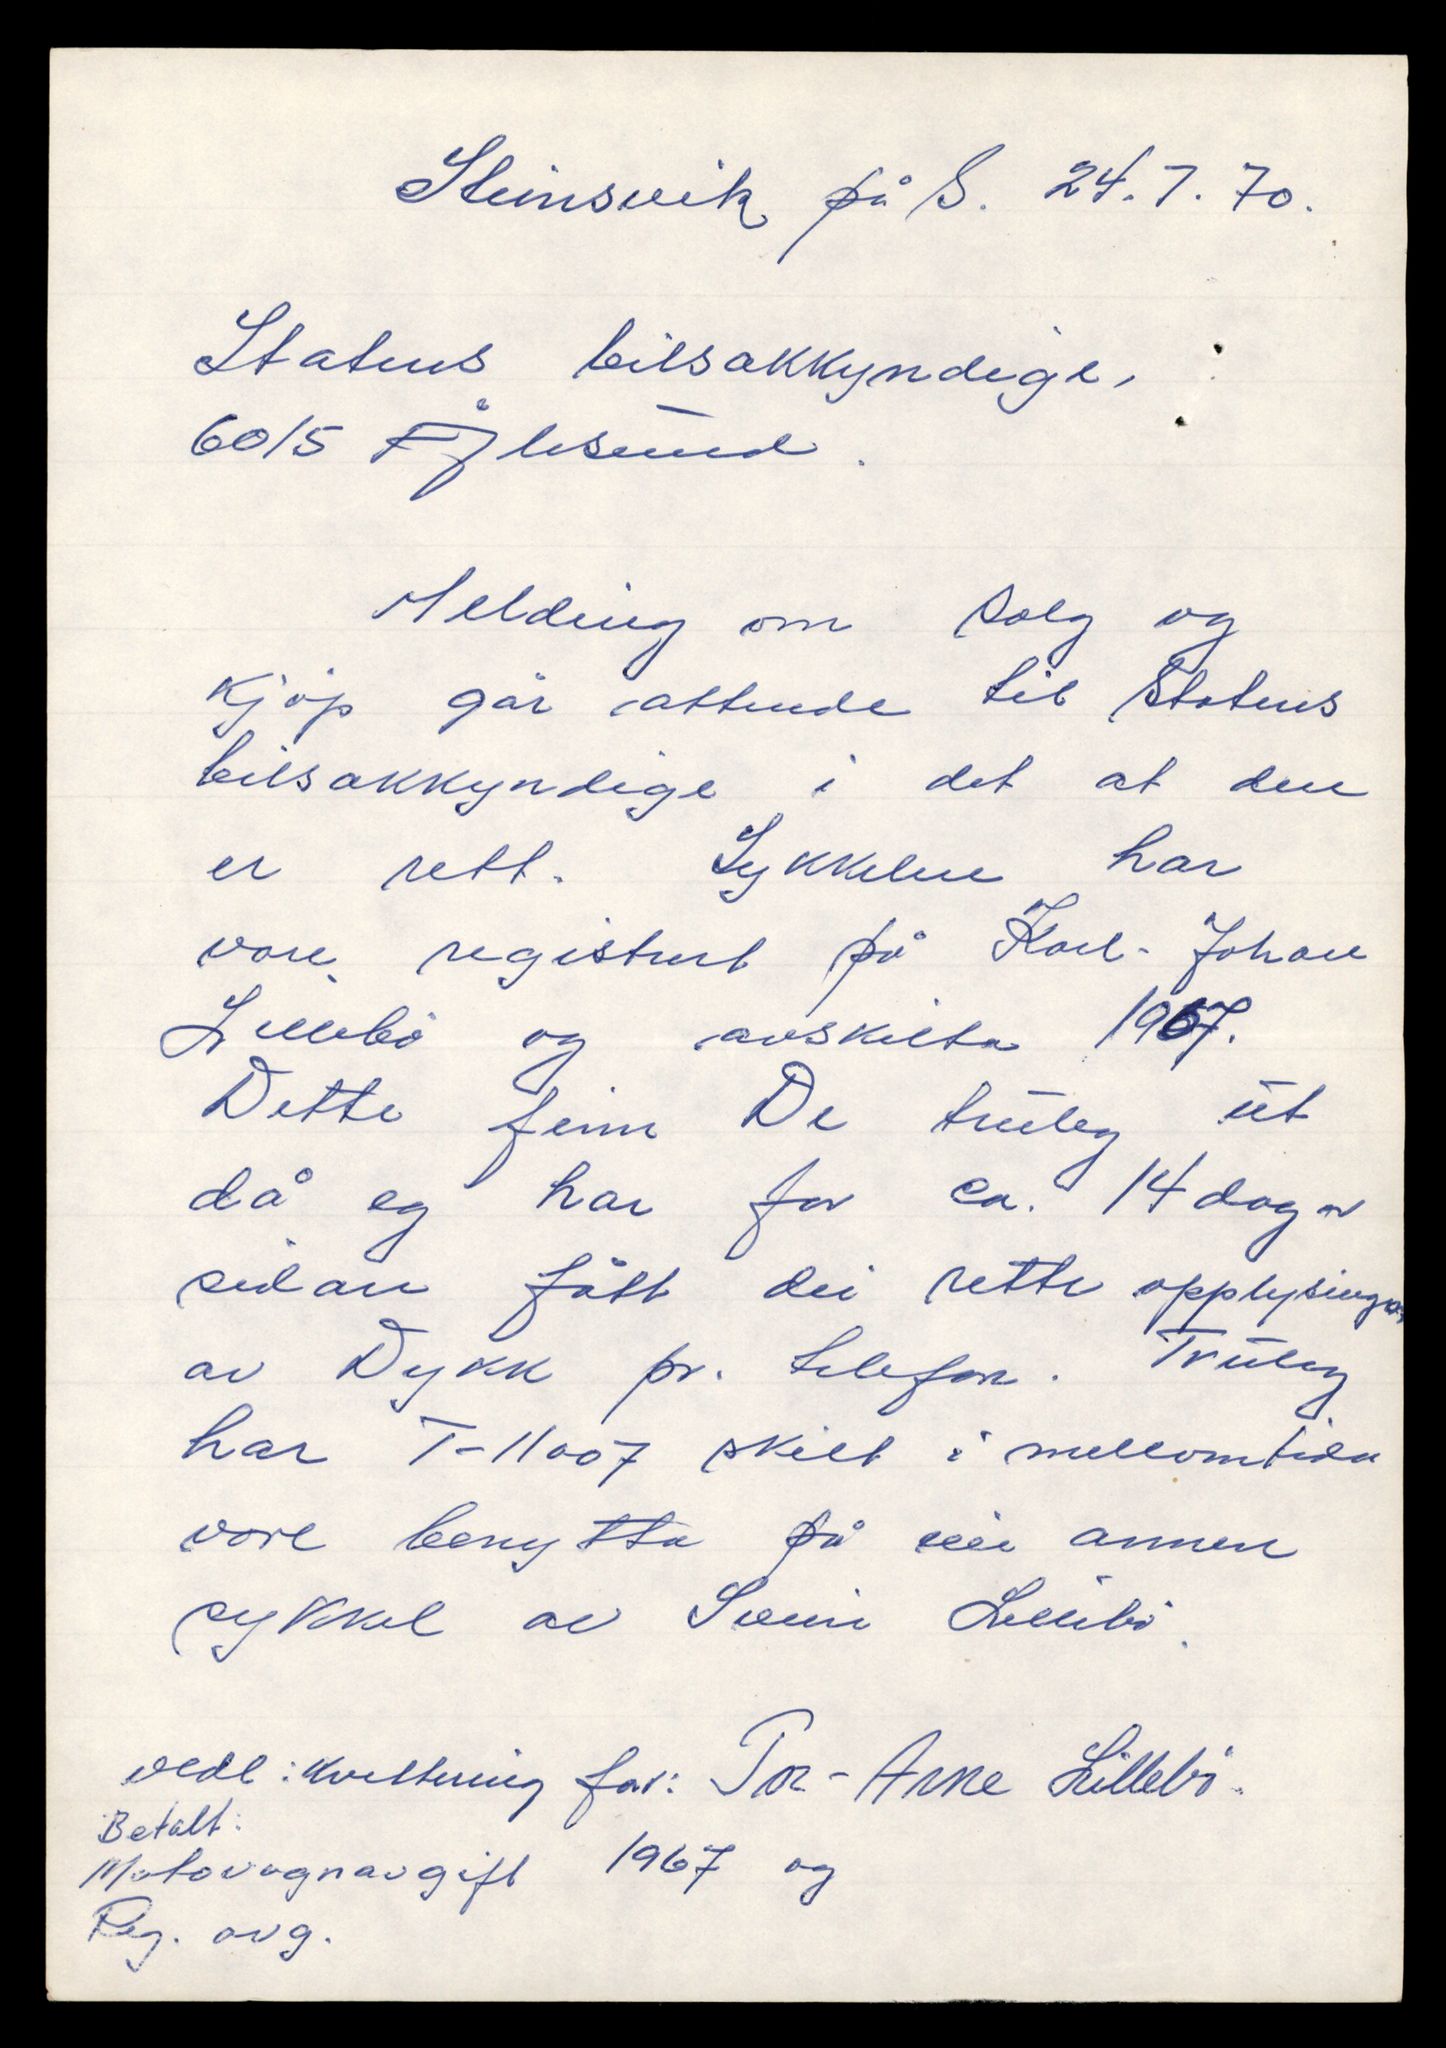 Steinsvik på S. 24.7.70.
Statens bilsakkyndige,
6015 Ålesund.
Melding om salg og
kjöp går attende til Statens
bilsakkyndige i det at den
er rett. Sykkelen har
vore registrert på Karl-Johan
Lillebö og avskilta 1967.
Dette finn De truleg ut
då eg har for ca. 14 dagar
sidan fått dei rette opplysingar
av Dykk pr. telefon. Truleg
har T-11007 skilt i mellomtida
vore benytta på ein annen
sykkel av Svein Lillebö.
vedl: kvittering for: Tor-Arne Lillebö.
Betalt:
Motovognavgift 1967 og
Reg. avg.